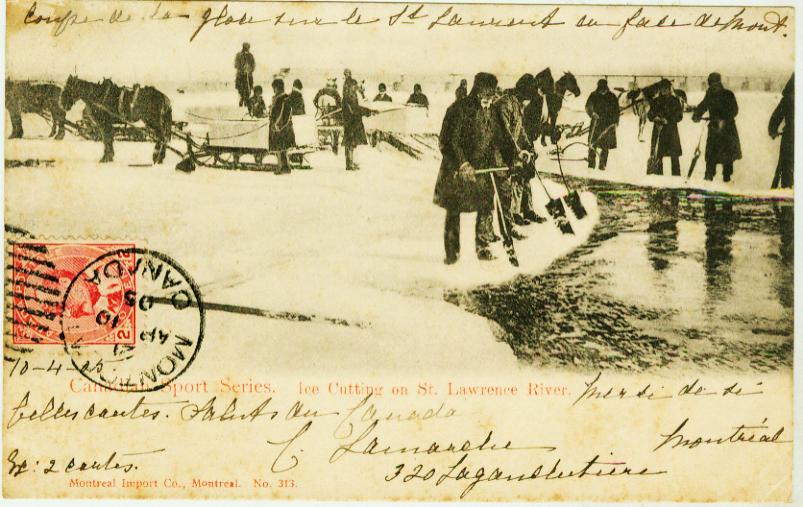 Coupe de la glace sur le St Laurent en face de Mont.
CANADA
2 2
MONTREAL CANADA
AP 10 05
10-4-05
Canadian Sport Series. Ice Cutting on St. Lawrence River.
Mersi de si
belles cartes. Saluts du Canada
C. Lamarche Montréal
Ex: 2 cartes.
320 Lagauchetiere
Montreal Import Co., Montreal. No. 313.